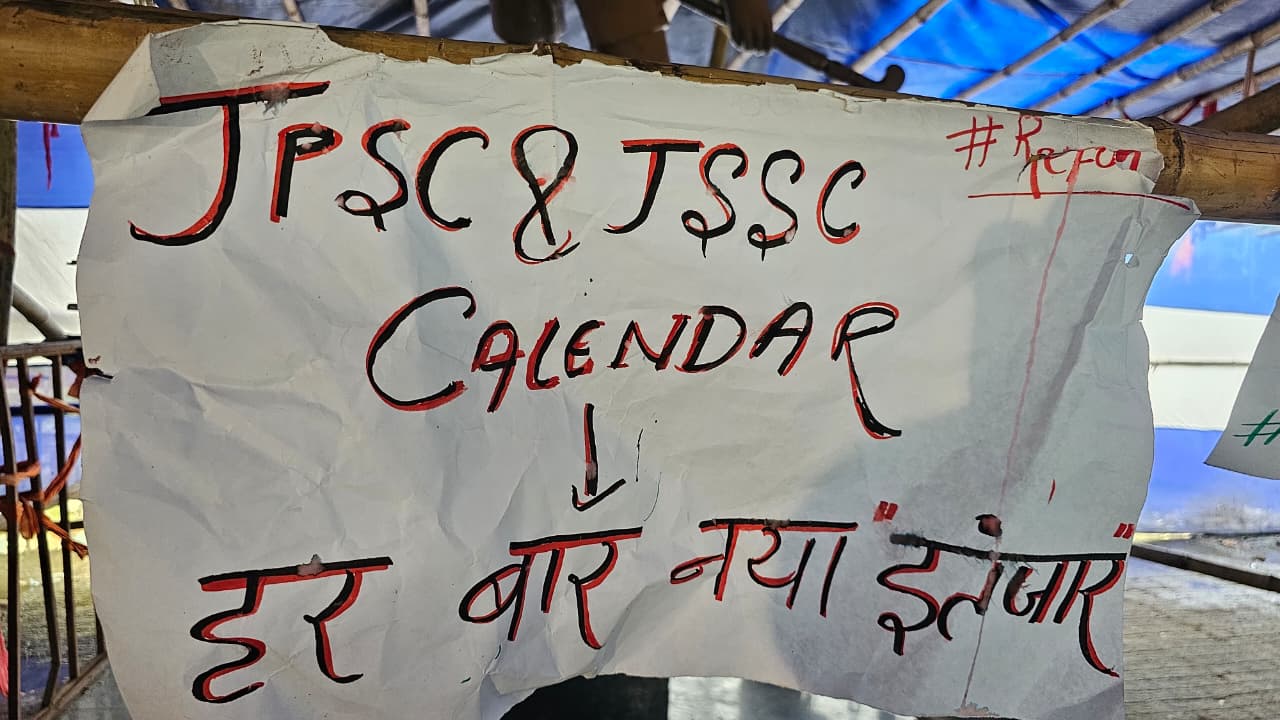 #Reform
JPSC & JSSC
CALENDAR
हर बार नया "इतंजार"
#